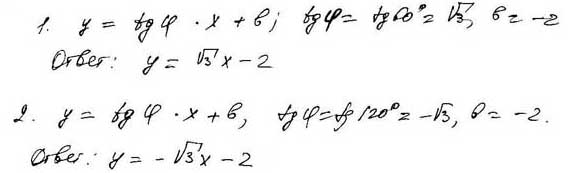 1. y = tg φ · x + b; tg φ = tg 60° = √3, b = -2
Ответ: y = √3 x - 2
2. y = tg φ · x + b, tg φ = tg 120° = -√3, b = -2.
Ответ: y = -√3 x - 2